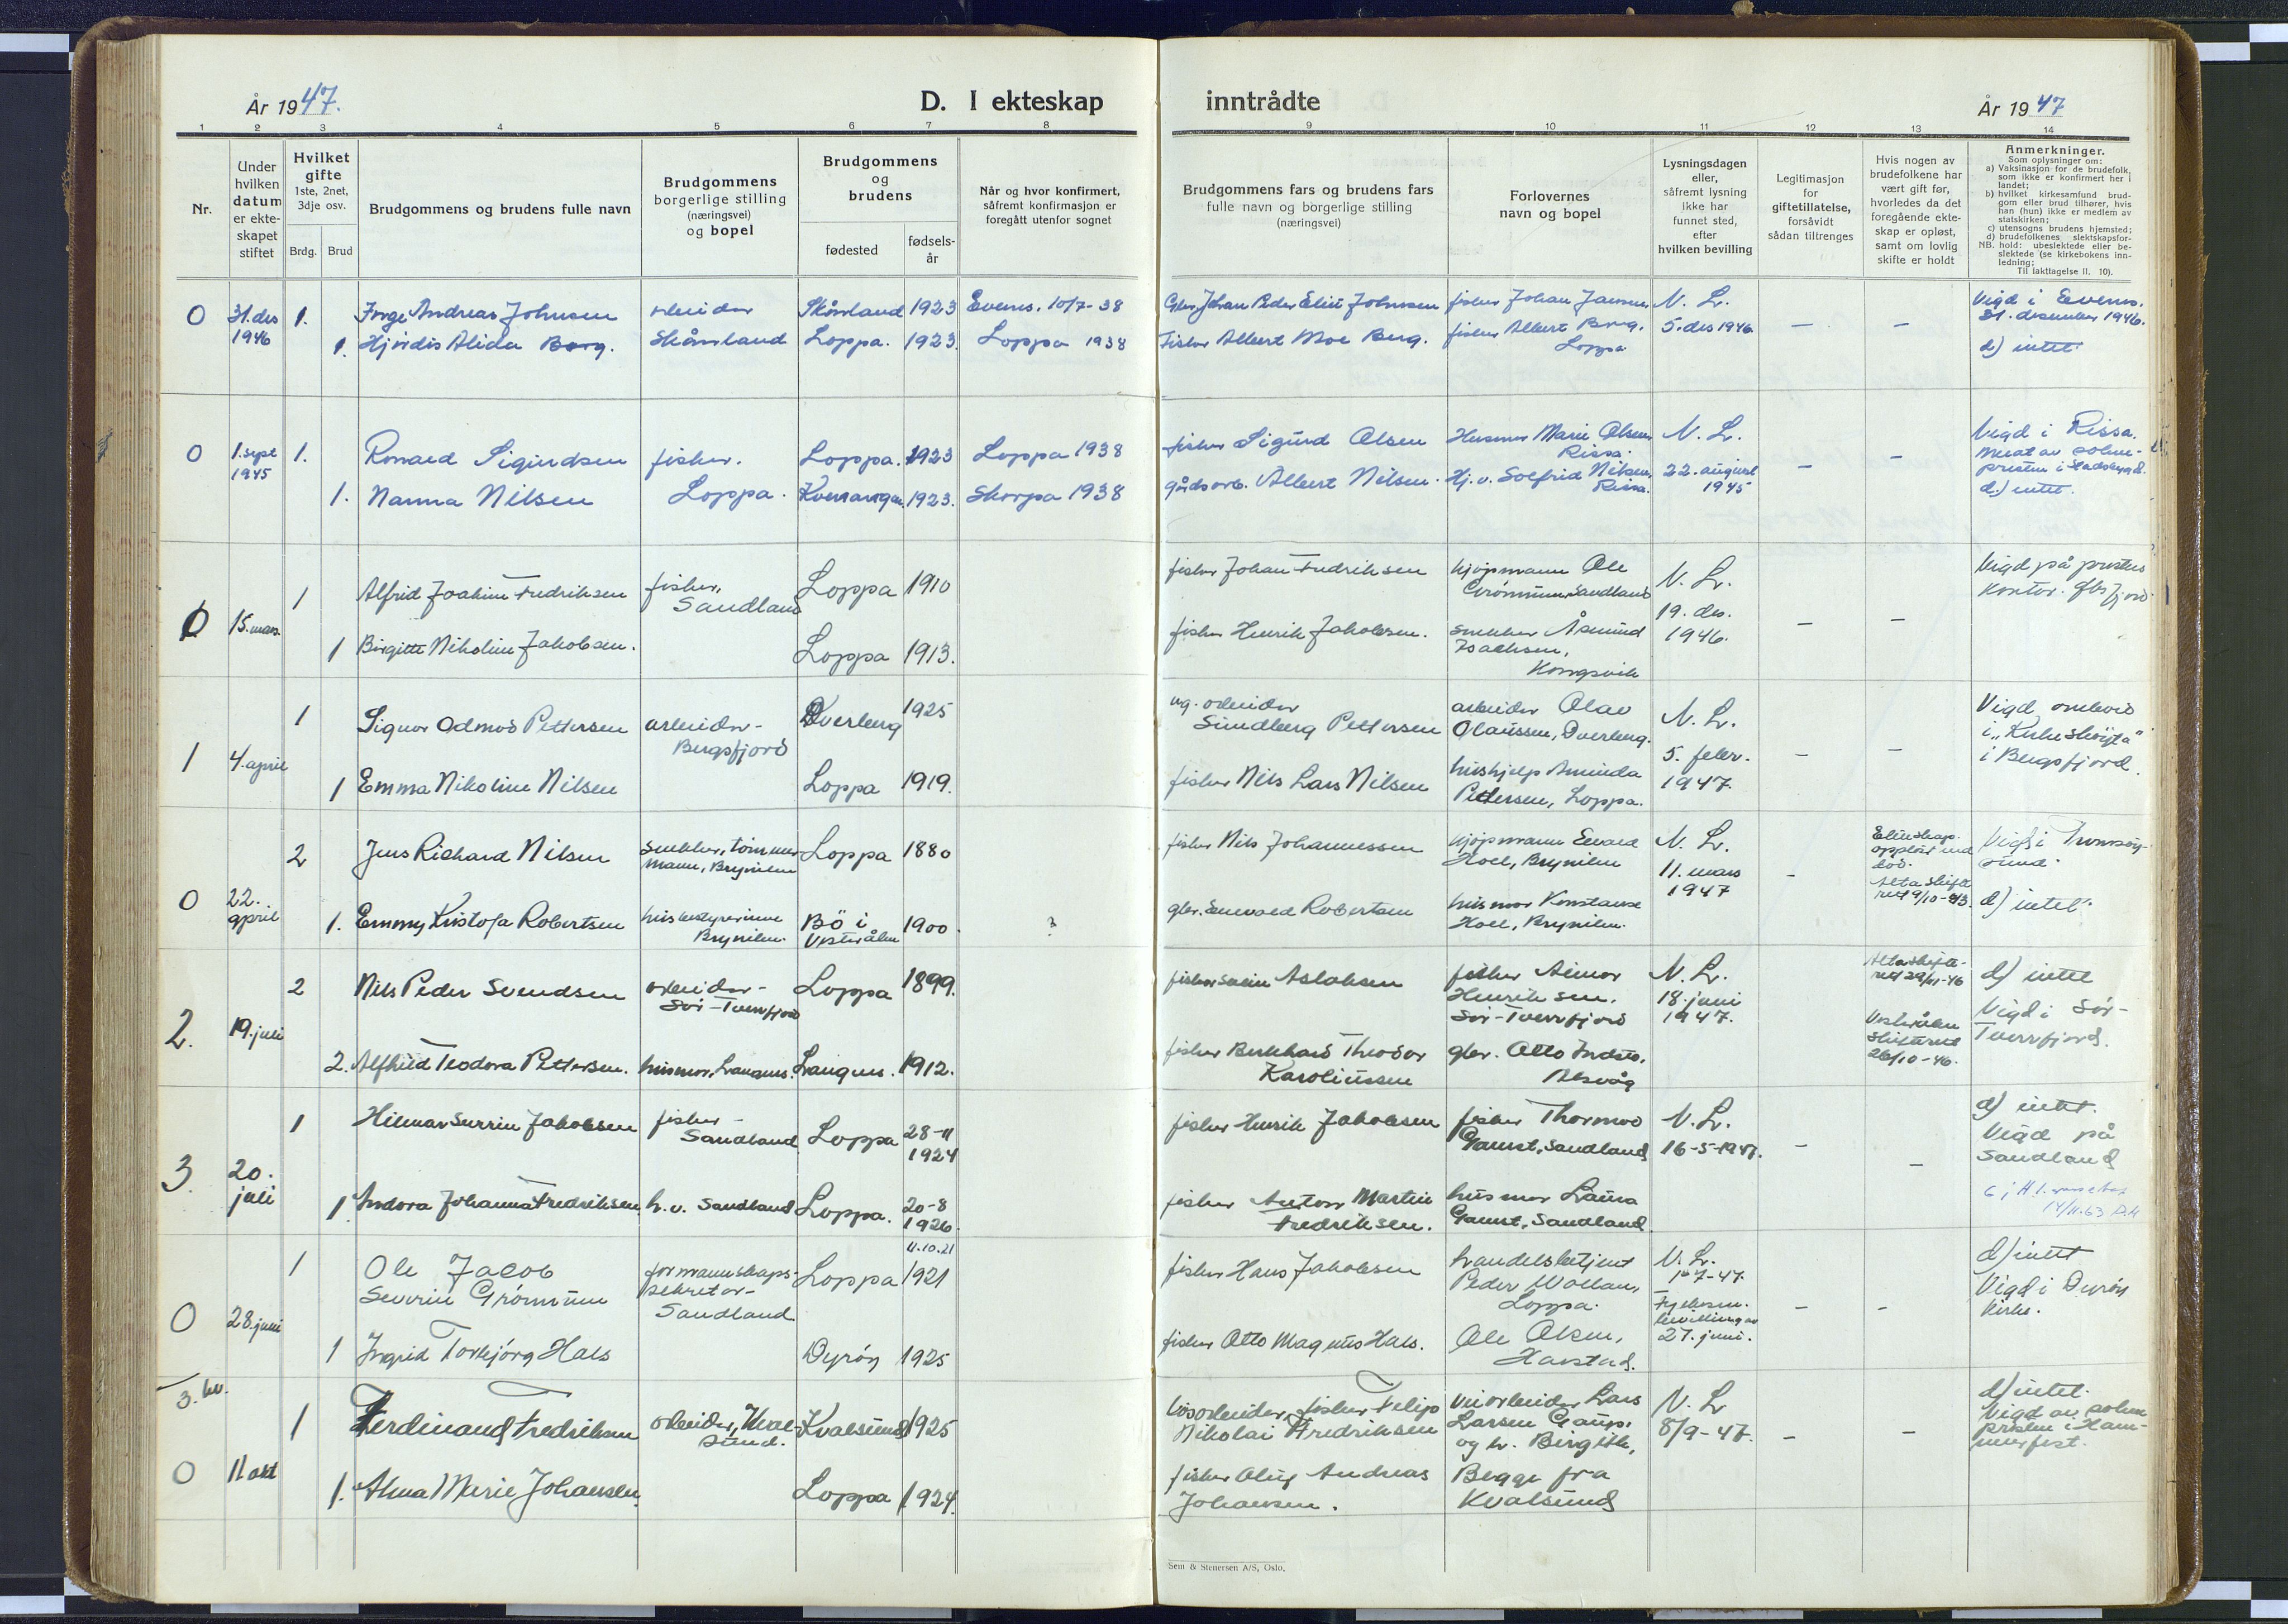 År 1947.
D. I ekteskap
inntrådte
År 1947
1 2 3 4 5 6 7 8 9 10 11 12 13 14
Nr.
Under
hvilken
datum
er ekte-
skapet
stiftet
Hvilket
gifte
1ste, 2net,
3dje osv.
Brdg. Brud
Brudgommens og brudens fulle navn
Brudgommens
borgerlige stilling
(næringsvei)
og bopel
Brudgommens
og
brudens
fødested
fødsels-
år
Når og hvor konfirmert,
såfremt konfirmasjon er
foregått utenfor sognet
Brudgommens fars og brudens fars
fulle navn og borgerlige stilling
(næringsvei)
Forlovernes
navn og bopel
Lysningsdagen
eller,
såfremt lysning
ikke har
funnet sted,
efter
hvilken bevilling
Legitimasjon
for
giftetillatelse,
forsåvidt
sådan tiltrenges
Hvis nogen av
brudefolkene har
vært gift før,
hvorledes da det
foregående ekte-
skap er opløst,
samt om lovlig
skifte er holdt
Anmerkninger.
Som oplysninger om:
a) Vaksinasjon for de brudefolk,
som ikke er konfirmert her i
landet;
b) hvilket kirkesamfund brud-
gom eller brud tilhører, hvis
han (hun) ikke er medlem av
statskirken;
c) utensogns brudens hjemsted;
d) brudefolkenes slektskapsfor-
NB. hold: ubeslektede eller be-
slektede (se kirkebokens inn-
ledning;
Til iakttagelse II. 10).
0 31. des 1946
1. Inge Andreas Johnsen arbeider Skånland 1923 Evenes. 10/7-38
1. Hjørdis Alida Berg. Skånland Loppa. 1923. Loppa 1938
Gbr. Johan Peder Elias Johnsen
Fisker Albert Moe Berg.
fisker Johan Jansen
fisker Albert Berg.
Loppa
N. L.
5. des 1946
– –
Vigd i Evenes.
31. desember 1946.
d) intet
0 1. sept 1945
1. Ronald Sigurdsen fisker. Loppa. 1923 Loppa 1938
1. Nanna Nilsen Loppa. Kvenangen. 1923. Skorpa 1938
fisker Sigurd Olsen
gårdsarb. Albert Nilsen.
Husmor Marie Olsen
Rissa.
Hj. v. Solfrid Nilsen,
Rissa.
N. L.
22. august
1945
– –
Vigd i Rissa.
d.) intet.
0 15. mars.
1 Alfrid Joakim Fredriksen fisker, Sandland Loppa 1910
1 Birgitte Nikoline Jakobsen. Loppa 1913.
fisker Johan Fredriksen
fisker Henrik Jakobsen.
kjøpmann Ole
Grønnum, Sandland
snekker Åsmund
Isachsen,
Kongsvik
N. L.
19. des.
1946.
– –
Vigd på prestens
kontor.
1 4. april
1 Signor Odmod Pettersen arbeider - Bergsfjord Dverberg 1925
1 Emma Nikoline Nilsen Loppa 1919.
arbeider
Sundberg Pettersen
fisker Nils Lars Nilsen
arbeider Olav
Olaussen, Dverberg.
hushjelp Aminda
Pettersen, Loppa.
N. L.
5. febr.
1947.
– –
Vigd
i Bergsfjord.
0 22. april
2 Jens Richard Nilsen snekker, tømmermann, Brynilen Loppa 1880
1. Emmy Kristofa Robertsen husbestyrerinne Brynilen. Bö i Vesterålen 1900 ?
fisker Nils Johannessen
gbr. Senvald Robertsen
kjøpmann Ewald
Hoel, Brynilen
husmor Konstanse
Hoel, Brynilen.
N. L.
11. mars
1947
–
Ekteskap.
oppløst ved
død.
Alta skifte
rett 9/10-43.
Vigd i Tromsøy-
sund.
d) intet
2. 19. juli
2 Nils Peder Svendsen arbeider - Sör-Tverrfjord Loppa 1899.
2. Alfhild Teodora Pettersen. husmor, Langnes. Langnes. 1912.
fisker Svein Aslaksen
fisker Berkhard Theodor
Karoliussen
fisker Aimor
Henriksen.
Sör-Tverrfjord
gbr. Otto
Alsvåg
N. L.
18. juni
1947.
Alta skifte-
rett 29/11-46
Vesterålen
skifterett
26/10-46.
d) intet
Vigd i Sör-
Tverrfjord.
3. 20. juli
1 Hilmar Surrin Jakobsen fisker - Sandland Loppa 28-11 1924
1 Andora Johanna Fredriksen h. v. Sandland Loppa. 20-8 1926.
fisker Henrik Jakobsen
fisker Anton Martin
Fredriksen.
fisker Thormod
Gamst, Sandland
husmor Laura
Gamst, Sandland
N. L.
16-5-1947.
– –
d) intet.
Vigd på
Sandland
0 28. juni
1 Ole Jacob
Severin Grönnum formannskaps-
sekretær -
Sandland Loppa 11.10.21 1921
1 Ingrid Torbjörg Hals Dyröy 1925
fisker Hans Jakobsen
fisker Otto Magnus Hals.
handelsbetjent
Peder Wollan,
Loppa.
Ole Olsen,
Harstad.
N. L.
27. juni.
– –
d) intet
Vigd i Dyröy
kirke.
3. kv.
0 11 okt
1 Ferdinand Fredriksen arbeider, Kvalsund. Kvalsund 1925
1. Alma Marie Johansen Loppa 1924.
løsarbeider, fisker Filip
Nikolai Fredriksen
fisker Oluf Andreas
Johansen.
veiarbeider Lars
Larsen Gaup.
og h. Birgith,
Begge fra
Kvalsund
N. L
8/9-47.
– –
d) intet.
Vigd av sokne
presten i Ham-
merfest.
Sem & Stenersen A/S, Oslo.